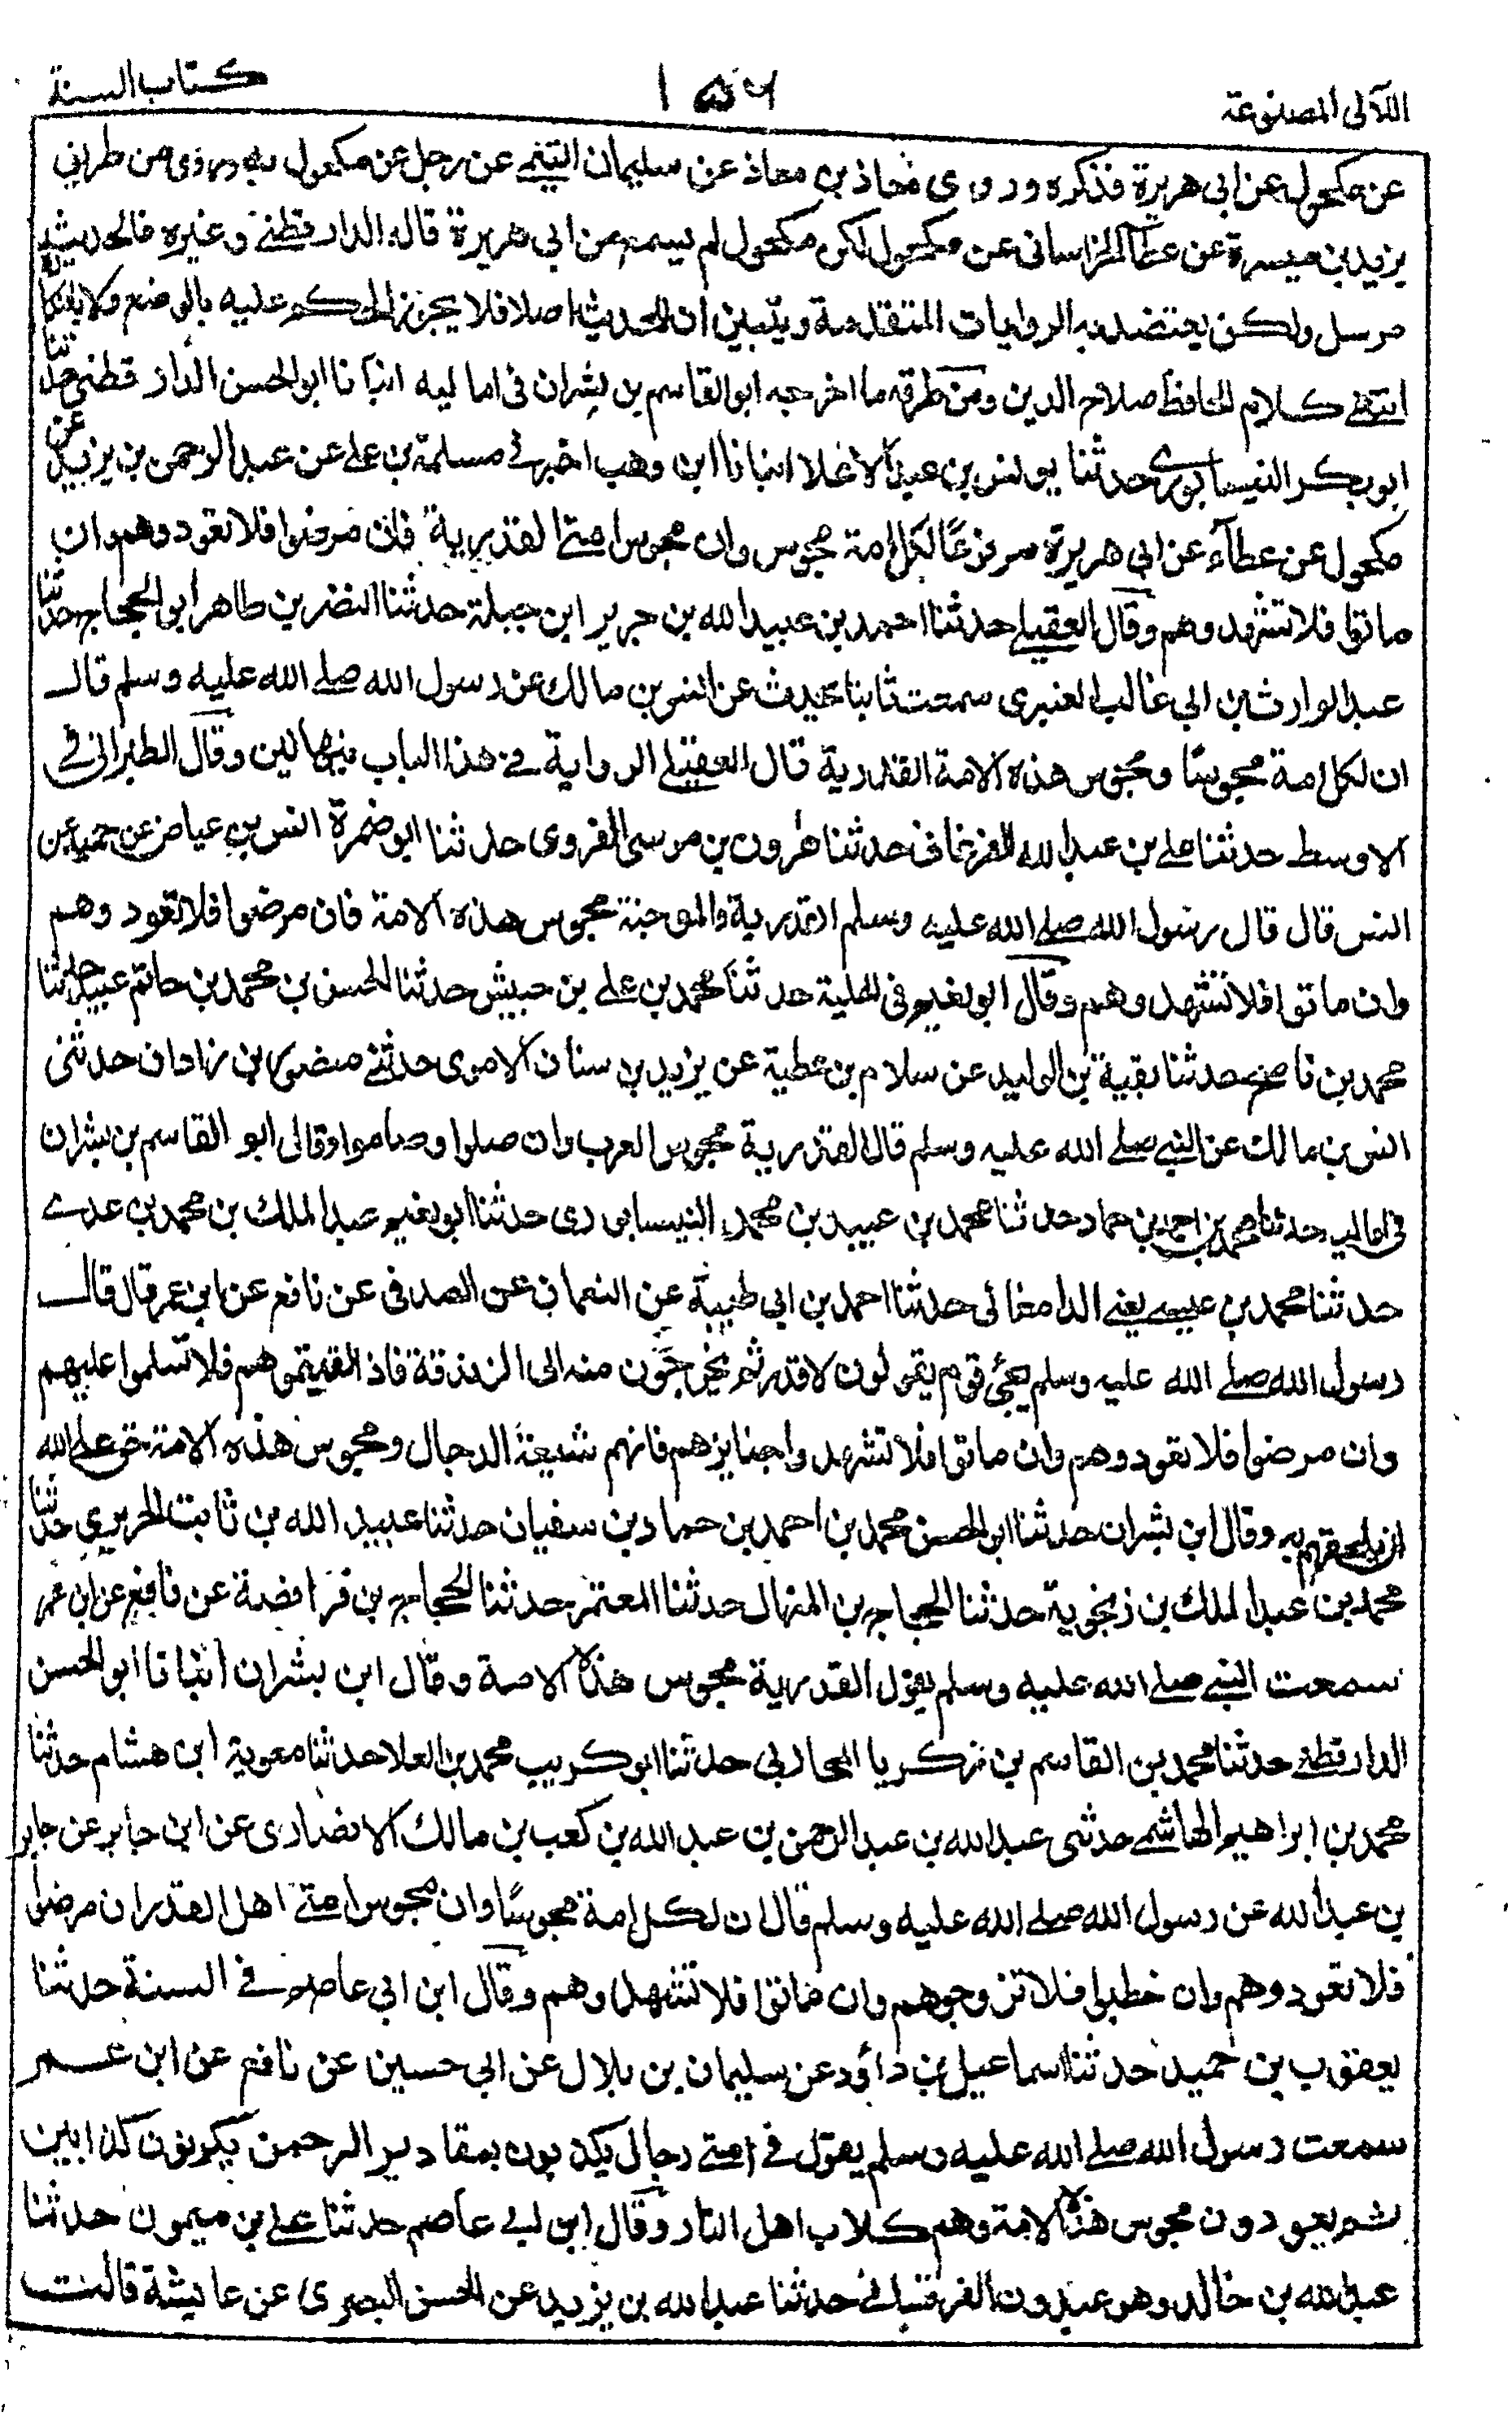 اللآلى المصنوعة
١٥٦
كتاب السنة
عن مكحول عن ابى هريرة فذكره وروى معاذ بن معاذ عن سليمان التيمى عن رجل عن مكحول به وروى من طريق
يزيد بن ميسرة عن عطا الخراسانى عن مكحول لكن مكحول لم يسمع من ابى هريرة قاله الدارقطنى وغيره فالحديث
مرسل ولكن يعتضد به الروايات المتقدمة ويتبين ان الحديث اصلا فلا يجوز الحكم عليه بالوضع ولا بالنكارة
انتهى كلام الحافظ صلاح الدين ومن طرقه ما اخرجه ابو القاسم بن بشران فى اماليه انبانا ابو الحسن الدارقطنى حدثنا
ابو بكر النيسابورى حدثنا يونس بن عبد الاعلا انبانا ابن وهب اخبرنى مسلمة بن على عن عبد الرحمن بن يزيد عن
مكحول عن عطاء عن ابى هريرة مرفوعًا لكل امة مجوس وان مجوس امتى القدرية فان مرضوا فلا تعودوهم وان
ماتوا فلا تشهدوهم وقال العقيلى حدثنا احمد بن عبيد الله بن جرير ابن جبلة حدثنا النضر بن طاهر ابو الحجاج حدثنا
عبد الوارث بن ابى غالب العنبرى سمعت ثابتا يحدث عن انس بن مالك عن رسول الله صلى الله عليه وسلم قال
ان لكل امة مجوسًا ومجوس هذه الامة القدرية قال العقيلى الرواية فى هذا الباب فيها لين وقال الطبرانى فى
الاوسط حدثنا على بن عبد الله الفرغانى حدثنا هٰرون بن موسى الفروى حدثنا ابو ضمرة انس بن عياض عن حميد عن
انس قال قال رسول الله صلى الله عليه وسلم القدرية والمرجئة مجوس هذه الامة فان مرضوا فلا تعودوهم
وان ماتوا فلا تشهدوهم وقال ابو نعيم فى الحلية حدثنا محمد بن على بن حبيش حدثنا الحسن بن محمد بن حاتم عبيد حدثنا
محمد بن ناصح حدثنا بقية بن الوليد عن سلام بن عطية عن يزيد بن سنان الاموى حدثنى منصور بن زاذان حدثنى
انس بن مالك عن النبى صلى الله عليه وسلم قال القدرية مجوس العرب وان صلوا وصاموا وقال ابو القاسم بن بشران
فى اماليه حدثنا محمد بن احمد بن حماد حدثنا محمد بن عبيد بن محمد النيسابورى حدثنا ابو نعيم عبد الملك بن محمد بن عدى
حدثنا محمد بن عيسى يعنى الدامغانى حدثنا احمد بن ابى طيبة عن النعمان عن الصدفى عن نافع عن ابن عمر قال قال
رسول الله صلى الله عليه وسلم يجئ قوم يقولون لا قدر ثم يخرجون منه الى الزندقة فاذ القيتموهم فلا تسلموا عليهم
وان مرضوا فلا تعودوهم وان ماتوا فلا تشهدوا جنايزهم فانهم شيعة الدجال ومجوس هذه الامة حق على الله
ان يلحقهم به وقال ابن بشران حدثنا ابو الحسن محمد بن احمد بن حماد بن سفيان حدثنا عبيد الله بن ثابت الحريرى حدثنا
محمد بن عبد الملك بن زنجوية حدثنا الحجاج بن المنهال حدثنا المعتمر حدثنا الحجاج بن فرافضة عن نافع عن ابن عمر
سمعت النبى صلى الله عليه وسلم يقول القدرية مجوس هذه الامة وقال ابن بشران انبانا ابو الحسن
الدارقطنى حدثنا محمد بن القاسم بن زكريا المحاربى حدثنا ابو كريب محمد بن العلا حدثنا معوية ابن هشام حدثنا
محمد بن ابراهيم الهاشمى حدثنى عبد الله بن عبد الرحمن بن عبد الله بن كعب بن مالك الانصارى عن ابن جابر عن جابر
بن عبد الله عن رسول الله صلى الله عليه وسلم قال ان لكل امة مجوسًا وان مجوس امتى اهل القدر ان مرضوا
فلا تعودوهم وان خطبوا فلا تزوجوهم وان ماتوا فلا تشهدوهم وقال ابن ابى عاصم فى السنة حدثنا
يعقوب بن حميد حدثنا اسماعيل بن داؤد عن سليمان بن بلال عن ابى حسين عن نافع عن ابن عمر
سمعت رسول الله صلى الله عليه وسلم يقول فى امتى رجال يكذبون بمقادير الرحمن يكونون كذابين
ثم يعودون مجوس هذه الامة وهم كلاب اهل النار وقال ابن ابى عاصم حدثنا على بن ميمون حدثنا
عبد الله بن خالد وهو عبدون القرقسانى حدثنا عبد الله بن يزيد عن الحسن البصرى عن عايشة قالت